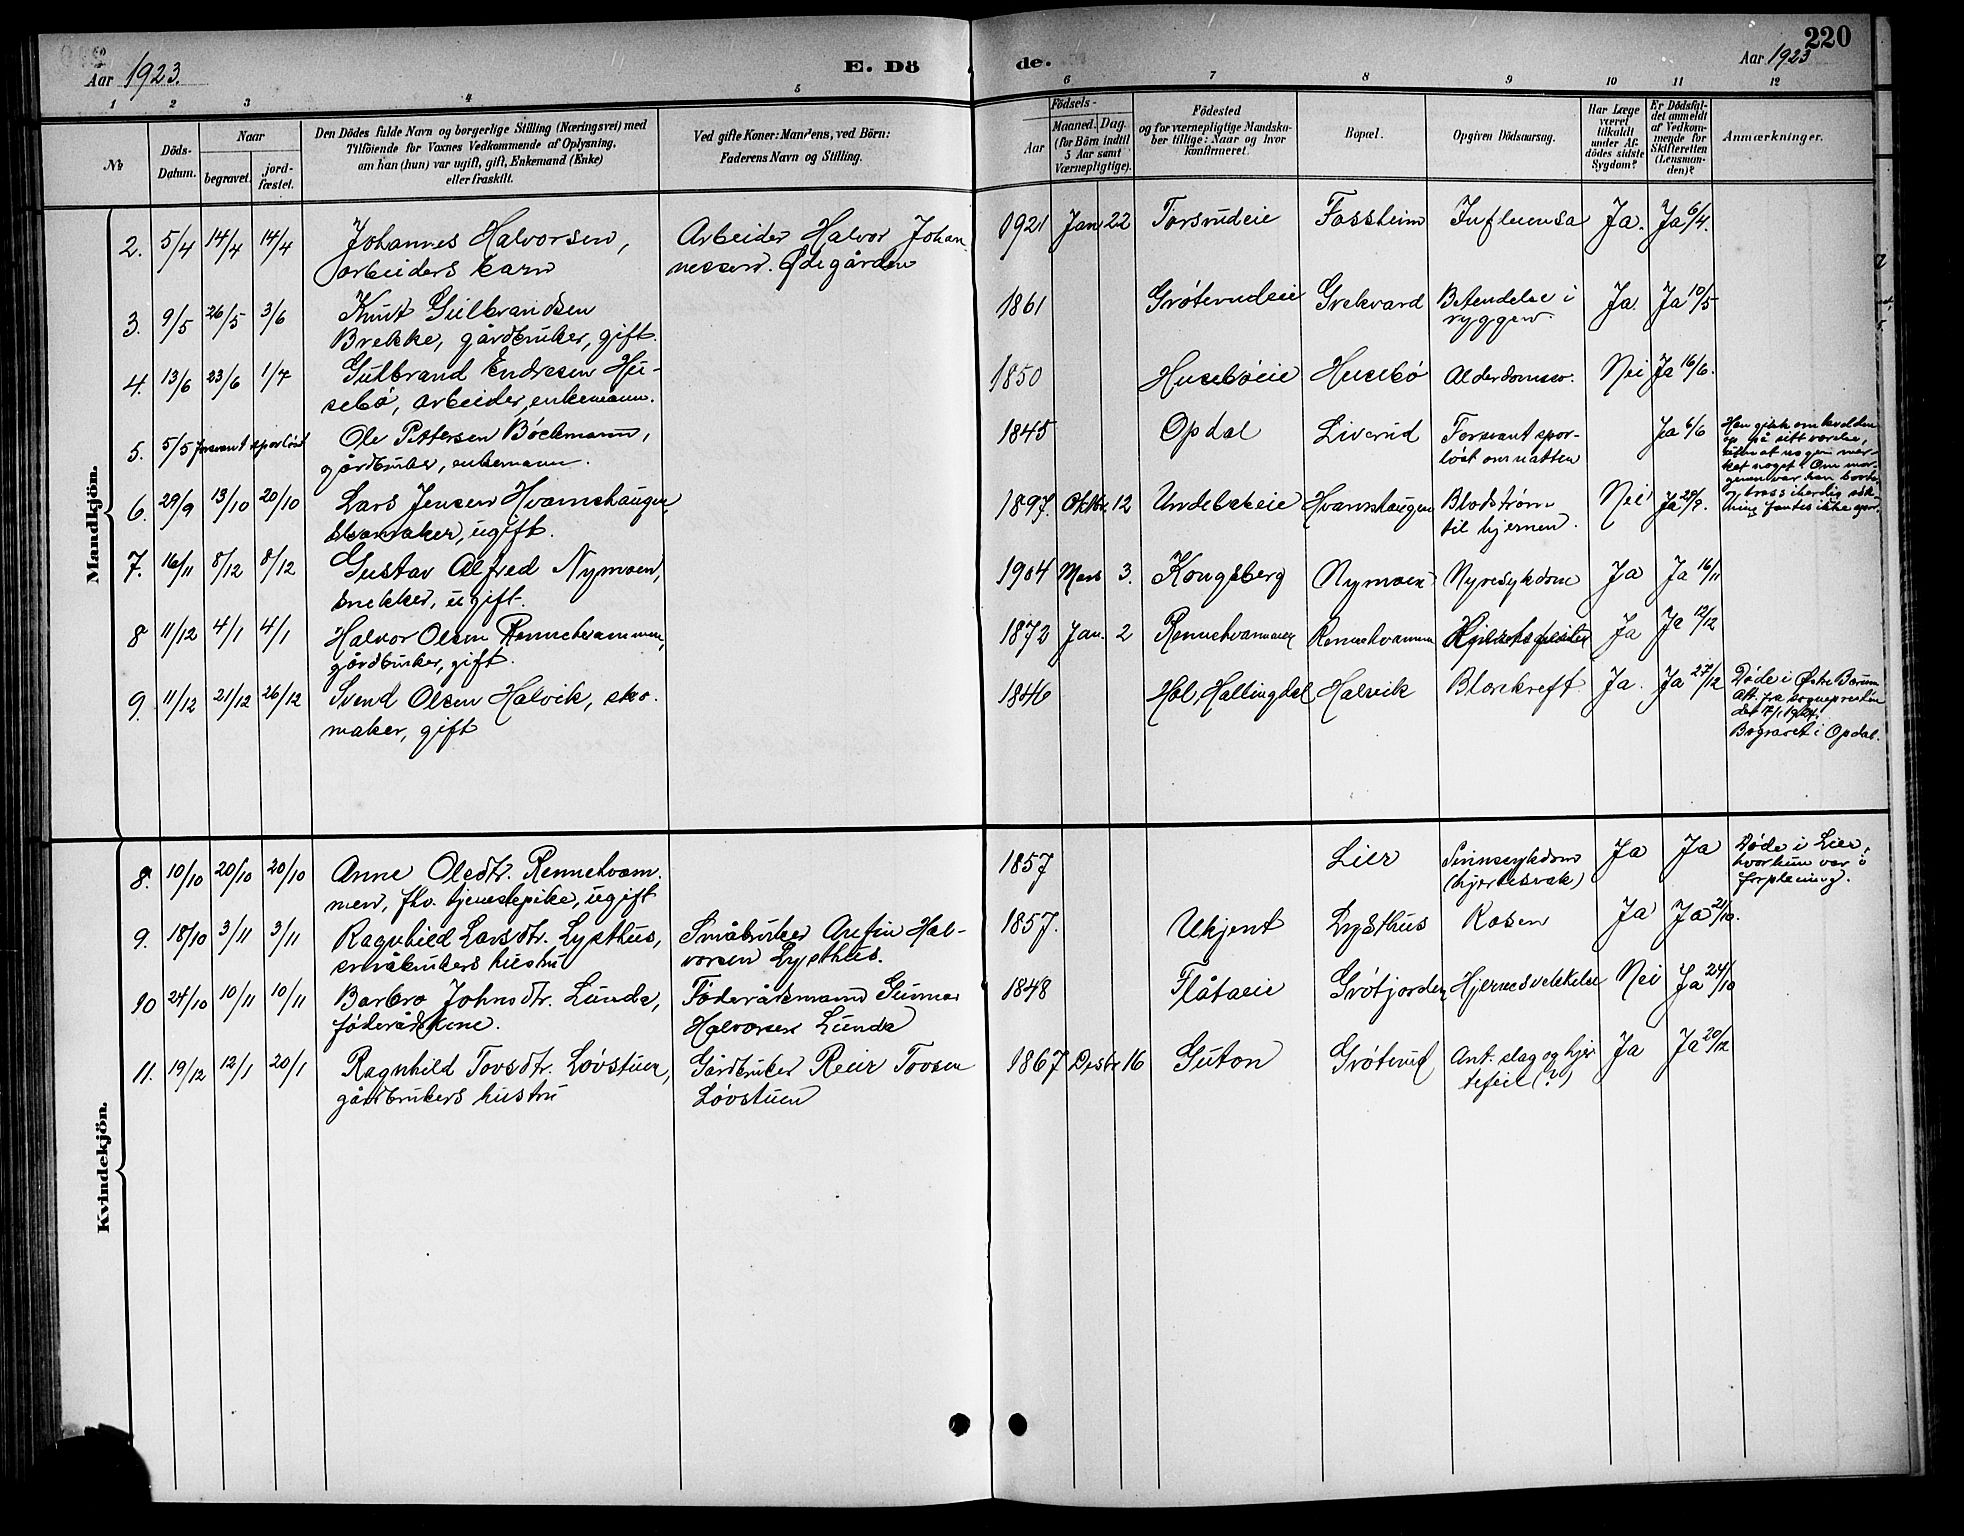 220
Aar 1923.
E. Dö
de.
Aar 1923
1 2 3 4 5 6 7 8 9 10 11 12
No
Döds-
Datum.
Naar
begravet.
jord-
fæstet.
Den Dödes fulde Navn og borgerlige Stilling (Næringsvei) med
Tilföiende for Voxnes Vedkommende af Oplysning,
om han (hun) var ugift, gift, Enkemand (Enke)
eller fraskilt.
Ved gifte Koner: Mandens, ved Börn:
Faderens Navn og Stilling.
Födsels-
Aar
Maaned. Dag.
(for Börn indtil
5 Aar samt
Værnepligtige).
Födested
og for værnepligtige Mandska-
ber tillige: Naar og hvor
konfirmeret.
Bopæl.
Opgiven Dödsaarsag.
Har Læge
været
tilkaldt
under Af-
dödes sidste
Sygdom?
Er Dödsfal-
det anmeldt
af Vedkom-
mende for
Skifteretten
(Lensman-
den)?
Anmærkninger.
Mandkjön.
2. 5/4 14/4 14/4 Johannes Halvorsen, Arbeider Halvor Johan- 1921 Jan 22 Torsrudeie Fossheim Influensa Ja. Ja 6/4.
arbeiders barn nessen. Ødegården
3. 9/5 26/5 3/6 Knut Gulbrandsen 1861 Grøterudeie Grekvard Betendelse i Ja. Ja 10/5
Brekke, gårdbruker, gift. ryggen.
4. 13/6 23/6 1/7 Gulbrand Endresen Hu- 1850 Husebøeie Husebö Alderdomssv. Nei Ja 16/6.
sebö, arbeider, enkemann.
5. 5/5 forsvant sporløst Ole Pettersen Böckmann, 1845 Opdal Liverud Forsvant spor- Ja 6/6
gårdbruker, enkemann. løst om natten
Han gikk om kvelden
op på sitt værelse,
uten at nogen mer-
ket noget. Om mor-
genen var han borte
og tross iherdig søk-
ning fantes ikke spor.
6. 29/9 13/10 20/10 Lars Jensen Hvamshaugen, 1897. Oktbr. 12 Undebakeie Hvamshaugen Blodstrøm Nei Ja 29/9.
skomaker, ugift. til hjernen.
7. 16/11 8/12 8/12 Gustav Alfred Nymoen, 1904 Mars 3. Kongsberg Nymoen Nyresykdom Ja Ja 16/11
snekker, ugift.
8 11/12 4/1 4/1 Halvor Olsen Rennehvammen, 1872 Jan. 2 Rennehvammen Rennehvammen Ja Ja 12/12
gårdbruker, gift.
9. 11/12 21/12 26/12 Svend Olsen Halvik, sko- 1846 Hol, Hallingdal Halvik Blærekreft Ja. Ja 27/12 Døde i Østre Bærum
maker, gift Att. fra sognepresten
der 7/1 1924.
Begravet i Opdal.
Kvindekjön.
8. 10/10 20/10 20/10 Anne Olsdtr. Rennehvam- 1857 Lier Sinnssykdom Ja Ja Døde i Lier,
men, fhv. tjenestepike, ugift (hjertesvak) hvor hun var i
forpleining.
9. 18/10 3/11 3/11 Ragnhild Larsdtr. Lysthus, Småbruker Arefin Hal- 1857. Ukjent Lysthus Rosen Ja Ja 21/10.
småbrukers hustru vorsen Lysthus.
10 24/10 10/11 10/11 Barbro Johnsdtr. Lunda, Føderådsmand Gunnar 1848 Flåtaeie Grøtjorden Hjernesvekkelse Nei Ja 24/10
føderådskone. Halvorsen Lunda
11. 19/12 12/1 20/1 Ragnhild Tovsdtr. Løvstuen, Gårdbruker Reier Tovsen 1867 Desbr 16 Guton Grøterud Ant. slag og hjer- Ja Ja 20/12
gårdbrukers hustru Løvstuen tefeil (?)